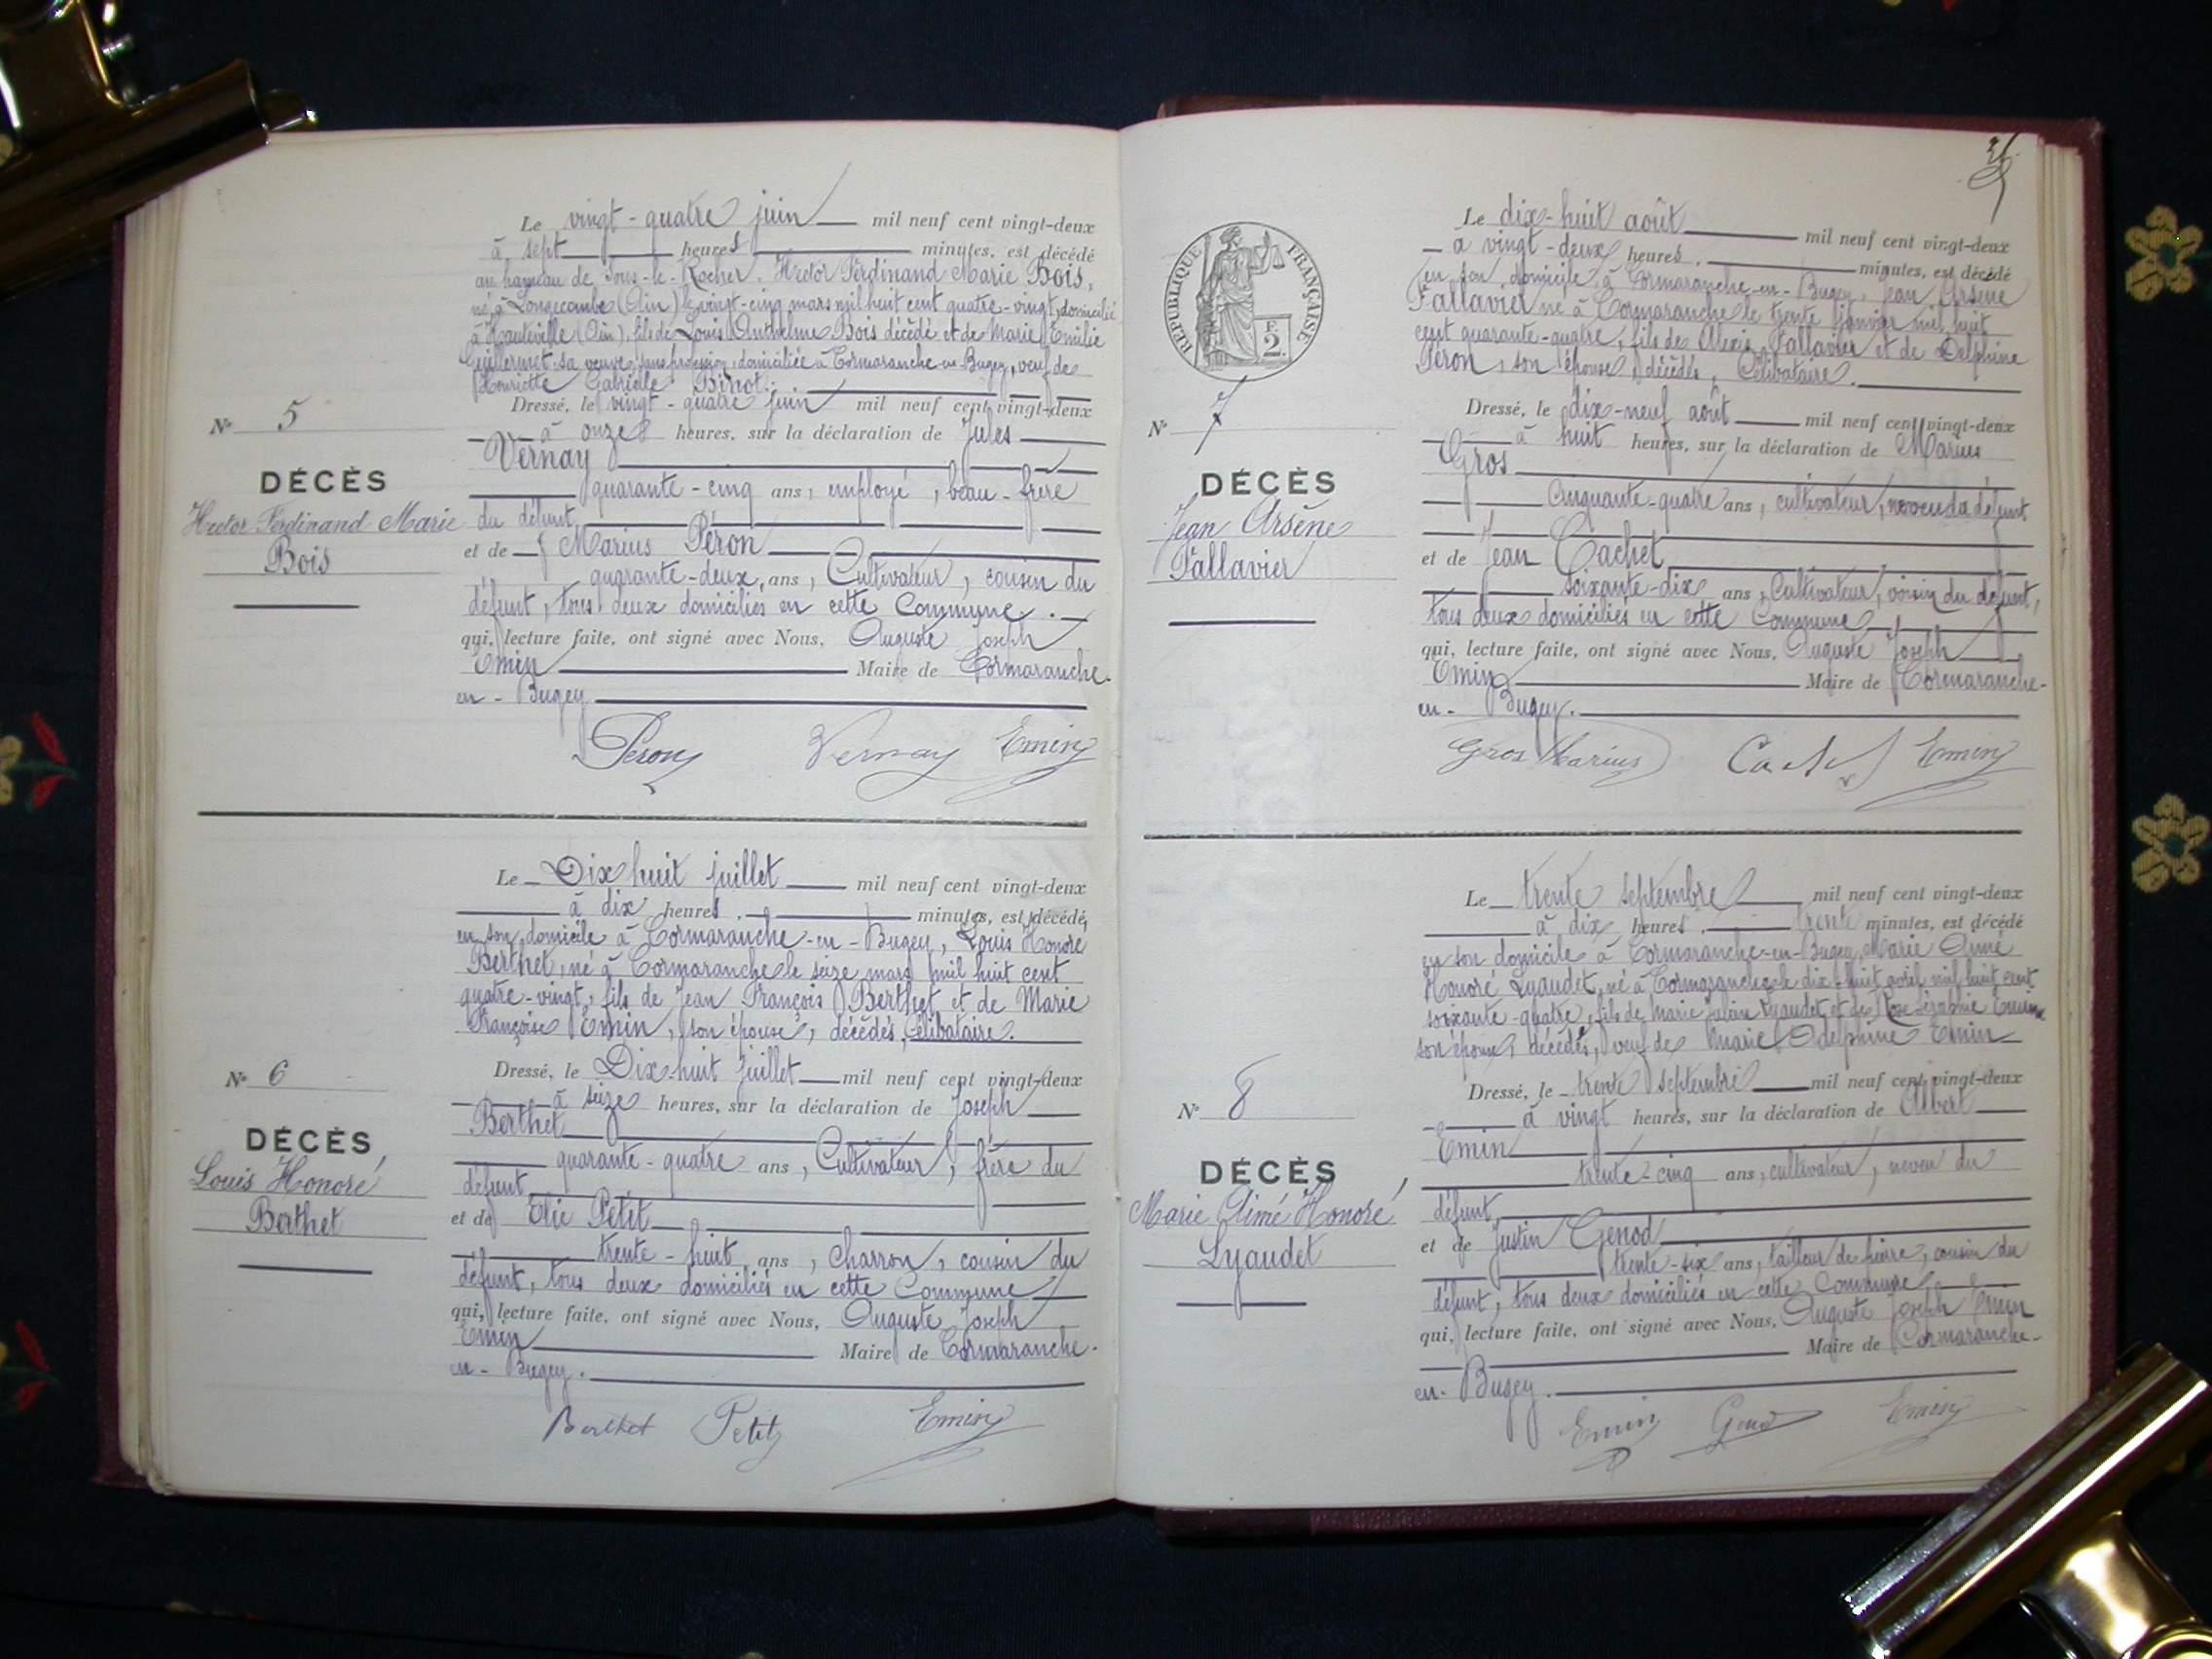 Le vingt-quatre juin mil neuf cent vingt-deux
à sept heures minutes, est décédé
au hameau de Sous-le-Rocher, Hector Ferdinand Marie Bois,
né à Longecombe (Ain) le vingt-cinq mars mil huit cent quatre-vingt, domicilié
à Hauteville (Ain), fils de Louis Anthelme Bois décédé et de Marie Emilie
sa veuve, sans profession, domiciliée à Cormaranche-en-Bugey, veuf de
Henriette Gabrielle Binot.
Dressé, le vingt-quatre juin mil neuf cent vingt-deux
à onze heures, sur la déclaration de Jules
Vernay
quarante-cinq ans, employé, beau-frère
du défunt
et de Marius Péron
quarante-deux ans, Cultivateur, cousin du
défunt, tous deux domiciliés en cette Commune.
qui, lecture faite, ont signé avec Nous, Auguste Joseph
Emin Maire de Cormaranche-
en-Bugey
Peron Vernay Emin
No 5
DÉCÈS
Hector Ferdinand Marie
Bois
Le Dix huit juillet mil neuf cent vingt-deux
à dix heures. minutes, est décédé,
en son domicile à Cormaranche-en-Bugey, Louis Honoré
Berthet, né à Cormaranche le seize mars mil huit cent
quatre-vingt, fils de Jean François Berthet et de Marie
Françoise Emin, son épouse, décédés, Célibataire.
Dressé, le Dix-huit juillet mil neuf cent vingt-deux
à seize heures, sur la déclaration de Joseph
Berthet
quarante-quatre ans, Cultivateur, frère du
défunt
et de Elie Petit
trente-huit ans, charron, cousin du
défunt, tous deux domiciliés en cette Commune
qui, lecture faite, ont signé avec Nous, Auguste Joseph
Emin Maire de Cormaranche-
en-Bugey.
Berthet Petit Emin
No 6
DÉCÈS
Louis Honoré
Berthet
RÉPUBLIQUE FRANÇAISE
F.
2.
Le dix-huit août mil neuf cent vingt-deux
à vingt-deux heures. minutes, est décédé
en son domicile à Cormaranche-en-Bugey, Jean Arsène
Fallavier né à Cormaranche le trente janvier mil huit
cent quarante-quatre, fils de Alexis Fallavier et de Delphine
Péron, son épouse, décédés, Célibataire.
Dressé, le dix-neuf août mil neuf cent vingt-deux
à huit heures, sur la déclaration de Marius
Gros
cinquante-quatre ans, cultivateur, neveu du défunt
et de Jean Cachet
soixante-dix ans, Cultivateur, voisin du défunt,
tous deux domiciliés en cette Commune
qui, lecture faite, ont signé avec Nous, Auguste Joseph
Emin Maire de Cormaranche-
en-Bugey.
Gros Marius Emin
No 7
DÉCÈS
Jean Arsène
Fallavier
Le trente septembre mil neuf cent vingt-deux
à dix heures. trente minutes, est décédé
en son domicile à Cormaranche-en-Bugey, Marie Aimé
Honoré Lyaudet, né à Cormaranche le dix-huit avril mil huit cent
soixante-quatre, fils de Marie Lyaudet et de Rose
son épouse, décédés, veuf de Marie Delphine Emin
Dressé, le trente septembre mil neuf cent vingt-deux
à vingt heures, sur la déclaration de Albert
Emin
trente-cinq ans, cultivateur, neveu du
défunt
et de Justin Genod
trente-six ans, tailleur de pierre, cousin du
défunt, tous deux domiciliés en cette Commune
qui, lecture faite, ont signé avec Nous, Auguste Joseph Emin
Maire de Cormaranche-
en-Bugey.
Emin Genod Emin
No 8
DÉCÈS
Marie Aimé Honoré
Lyaudet